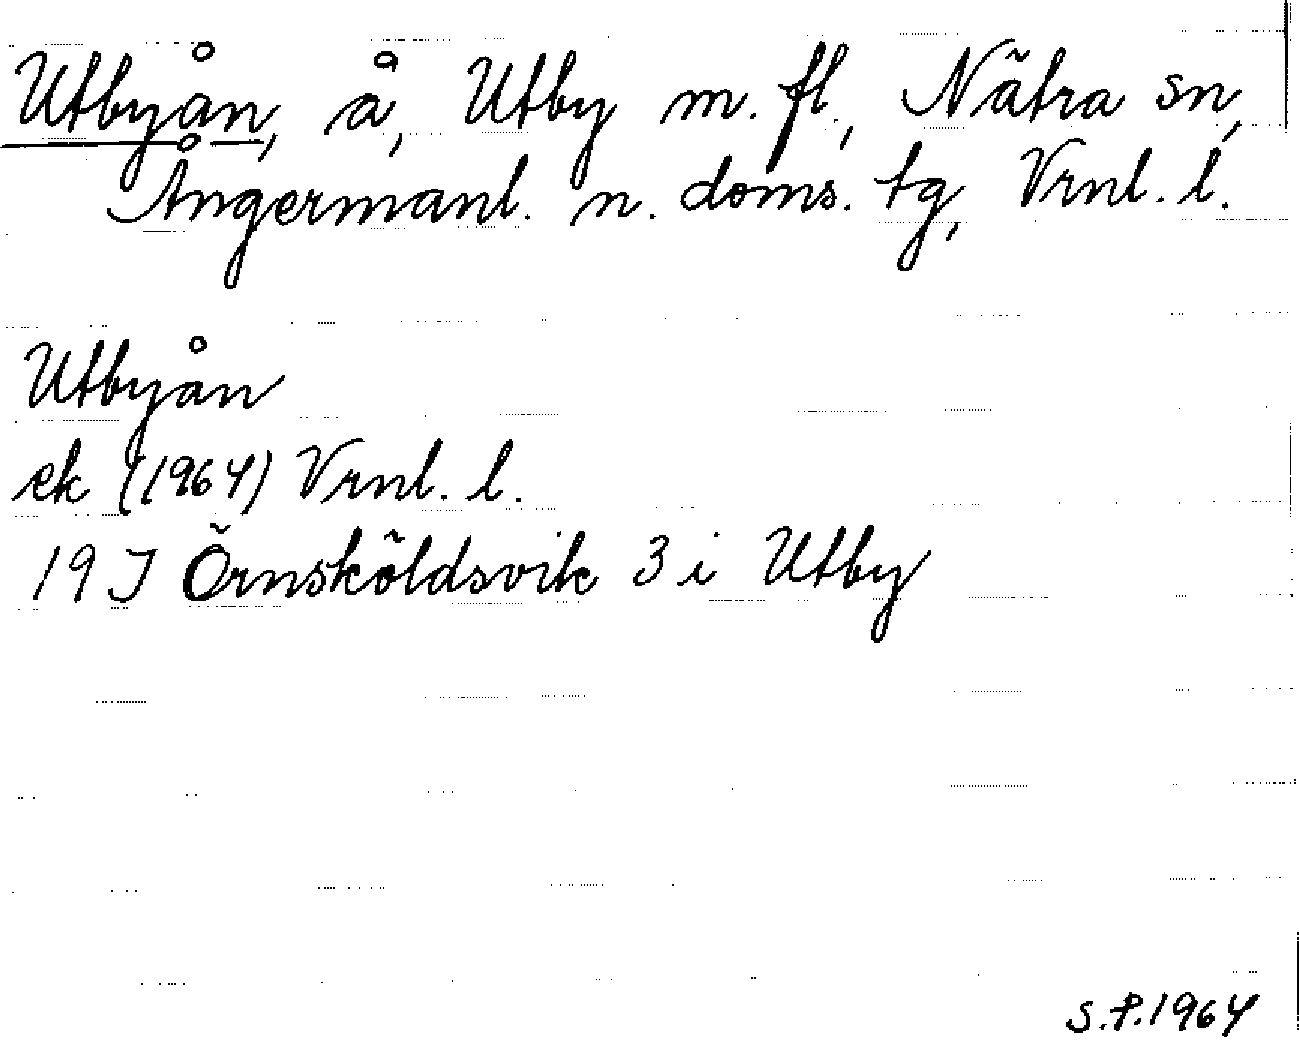 Utbyån, å, Utby m. fl., Nätra sn,
Ångermanl. n. doms. tg, Vrnl. l.
Utbyån
ek (1964) Vrnl. l.
19 J Örnsköldsvik 3 i Utby
S.P. 1964